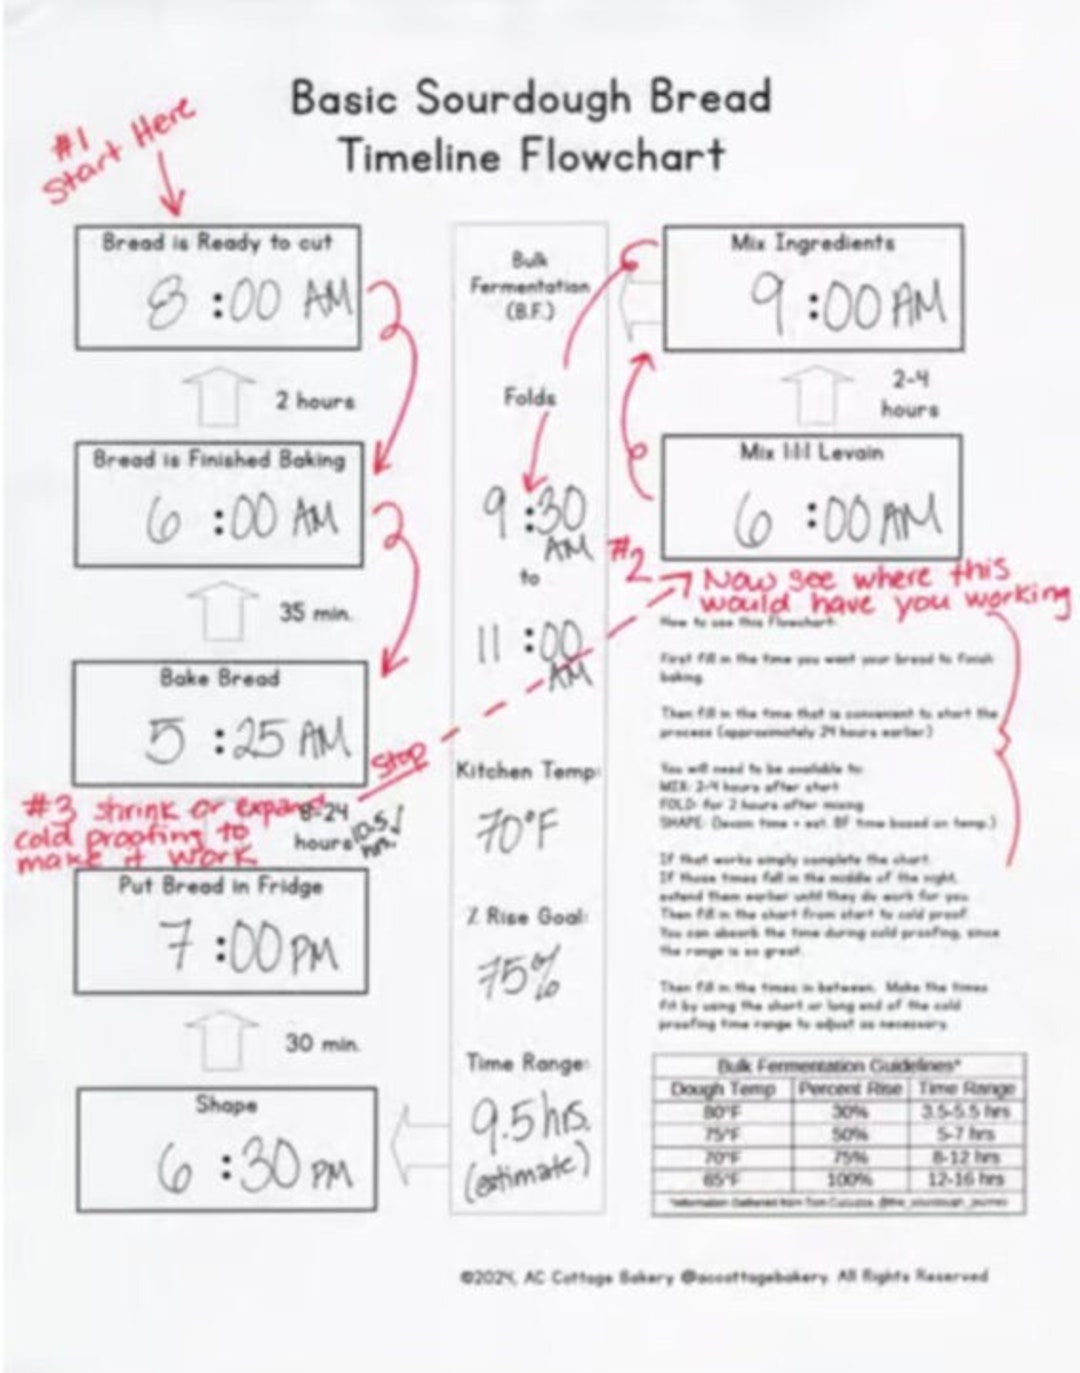 Basic Sourdough Bread
Timeline Flowchart
#1
Start Here
Bread is Ready to cut
8:00 AM
2 hours
Bread is Finished Baking
6:00 AM
35 min.
Bake Bread
5:25 AM
Stop
#3 shrink or expand
cold proofing to
make it work
8-24
hours
10.5
hrs.
Put Bread in Fridge
7:00 PM
30 min.
Shape
6:30 PM
Bulk
Fermentation
(B.F.)
Folds
9:30
AM
to
11:00
AM
Kitchen Temp:
70°F
% Rise Goal:
75%
Time Range:
9.5 hrs.
(estimate)
Mix Ingredients
9:00 AM
2-4
hours
Mix 1:1:1 Levain
6:00 AM
#2
Now see where this
would have you working
How to use this Flowchart:
First fill in the time you want your bread to finish
baking.
Then fill in the time that is convenient to start the
process (approximately 24 hours earlier)
You will need to be available to:
MIX: 2-4 hours after start
FOLD: for 2 hours after mixing
SHAPE: (Levain time + est. BF time based on temp.)
If that works simply complete the chart.
If those times fall in the middle of the night,
extend them earlier until they do work for you.
Then fill in the chart from start to cold proof.
You can absorb the time during cold proofing, since
the range is so great.
Then fill in the times in between. Make the times
fit by using the short or long end of the cold
proofing time range to adjust as necessary.
Bulk Fermentation Guidelines*
Dough Temp Percent Rise Time Range
80°F 30% 3.5-5.5 hrs
75°F 50% 5-7 hrs
70°F 75% 8-12 hrs
65°F 100% 12-16 hrs
*Information Gathered from Tom Cucuzza @the_sourdough_journey
©2024, AC Cottage Bakery @accottagebakery. All Rights Reserved